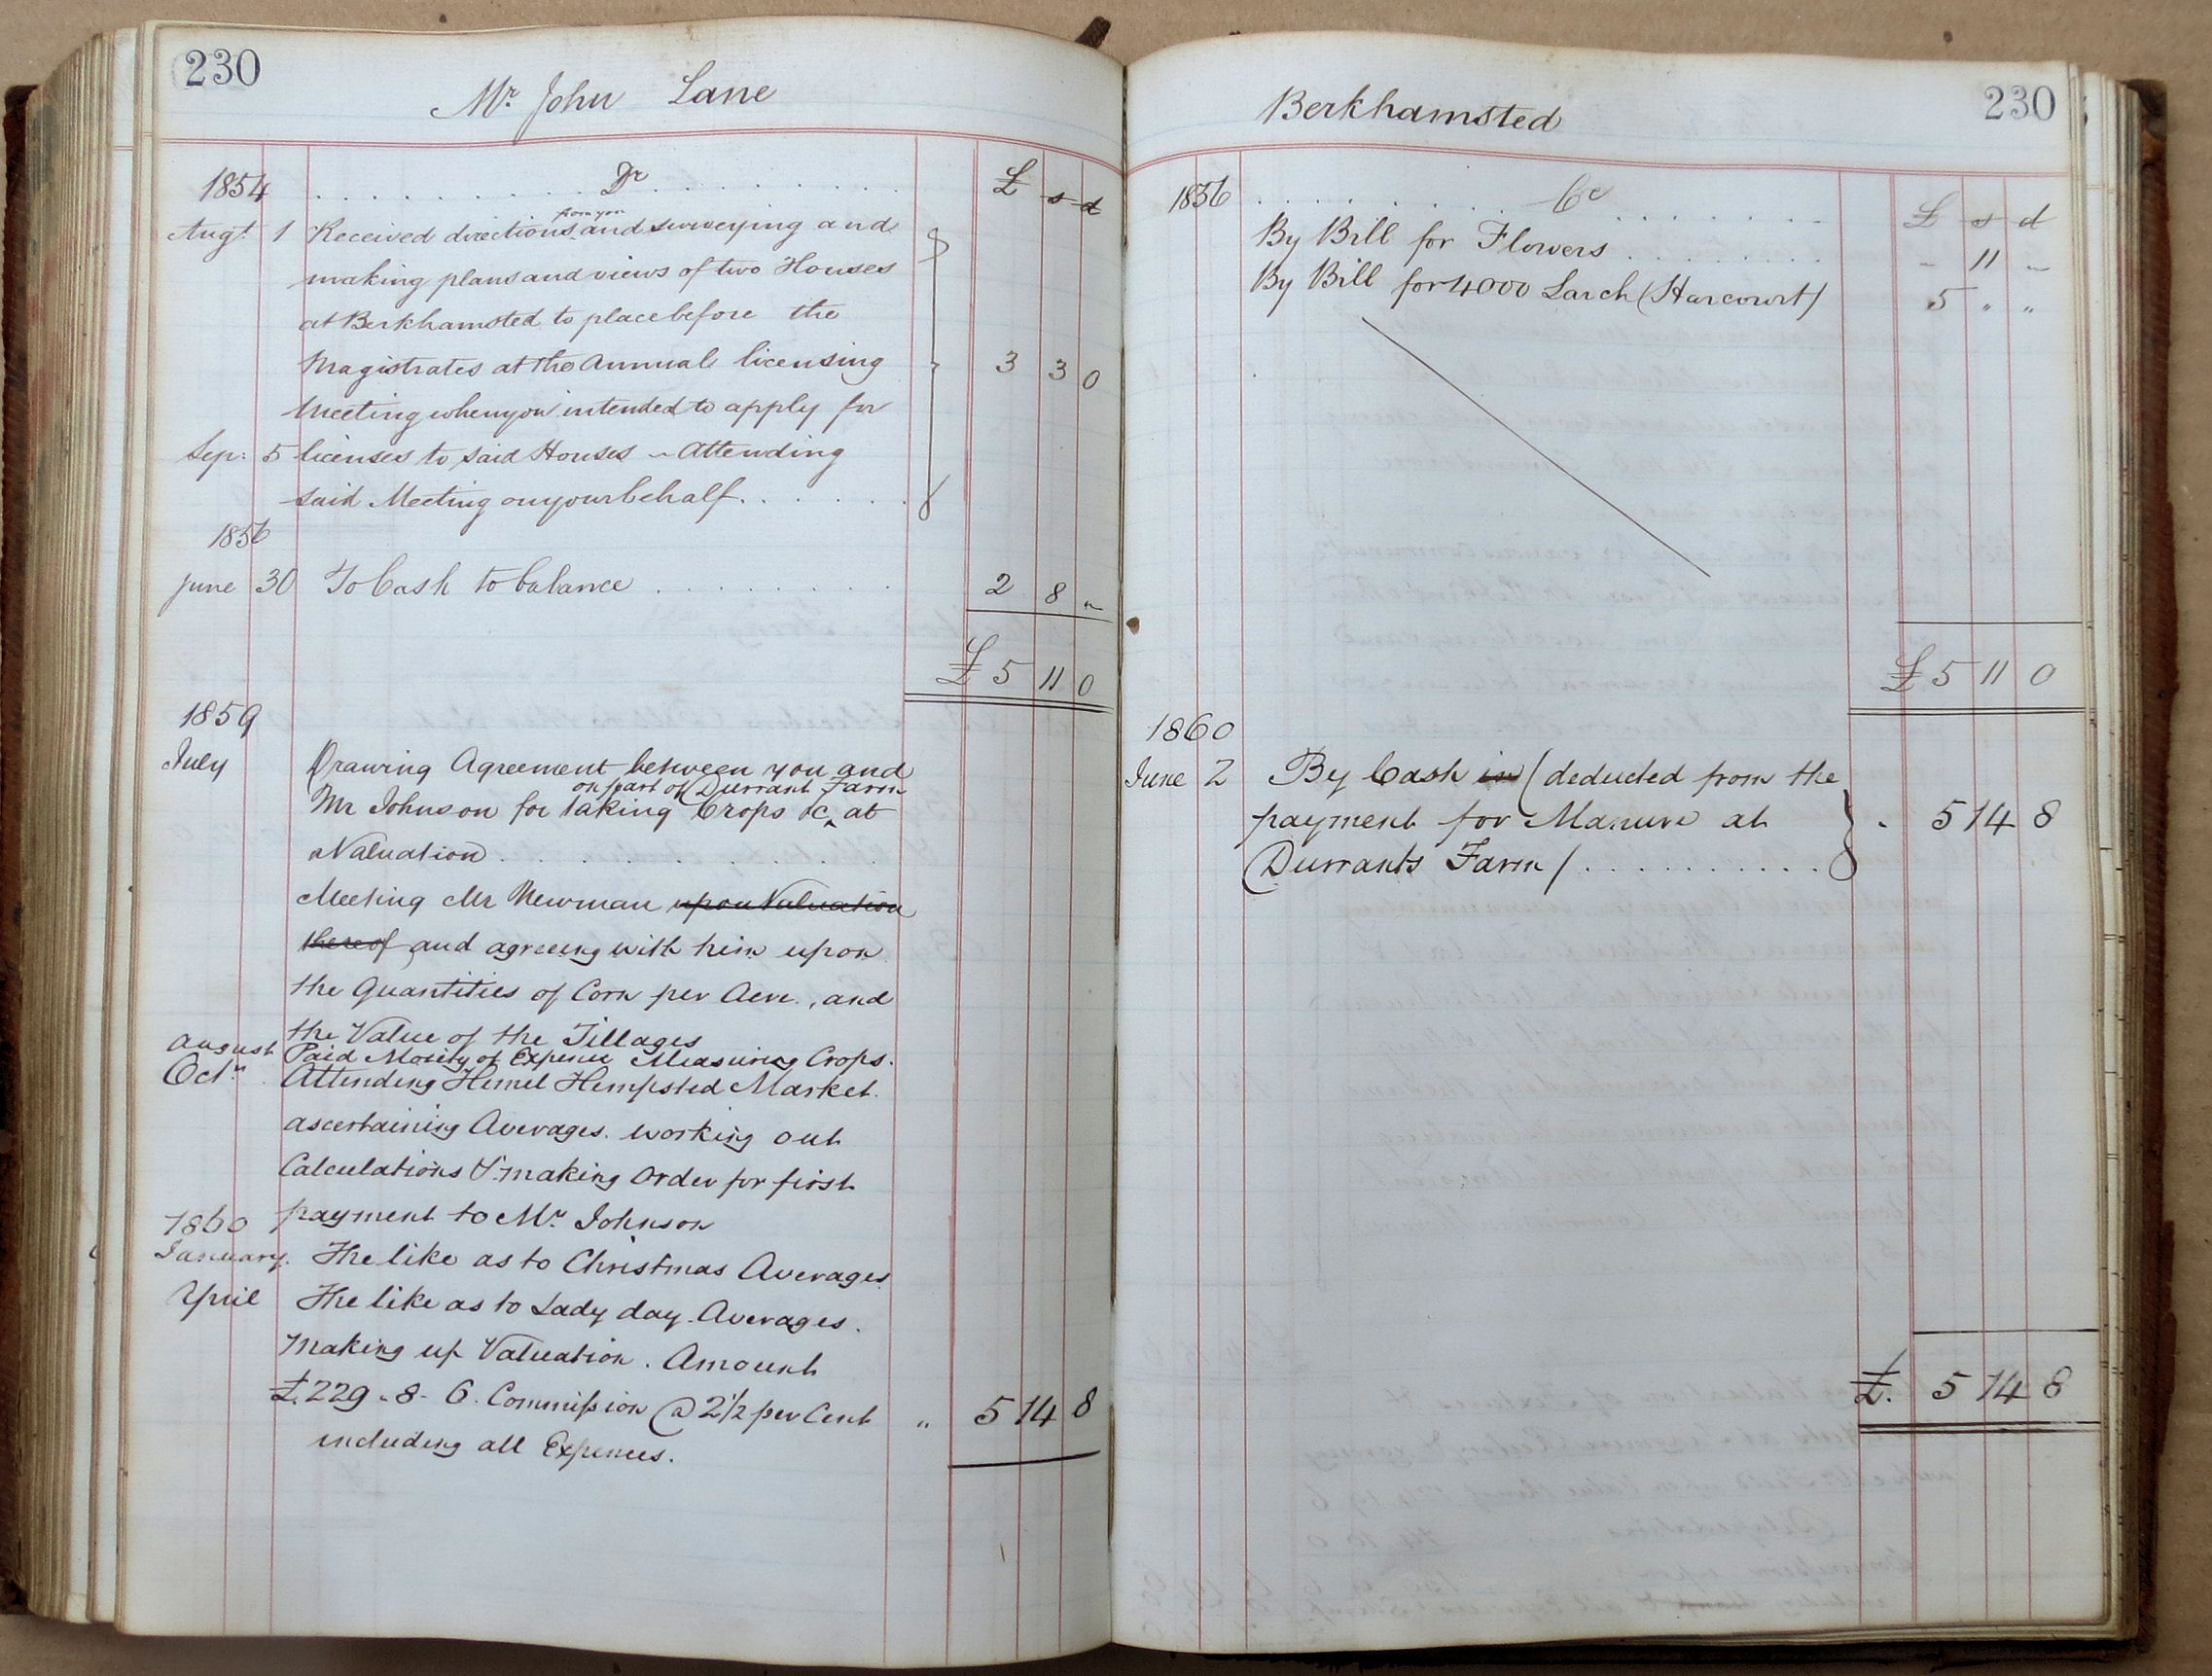 230
Mr. John Lane
1854 Dr £ s d
from you
Augt. 1 Received directions and surveying and
making plans and views of two Houses
at Berkhamsted to place before the
Magistrates at the Annual licensing 3 3 0
Meeting when you intended to apply for
Sep: 5 licenses to said Houses ~ Attending
said Meeting on your behalf.
1856
June 30 To Cash to balance 2 8 "
£ 5 11 0
1859
July Drawing Agreement between you and
on part of Durrant Farm
Mr Johnson for taking Crops &c at
a Valuation
Meeting Mr Newman upon Valuation
thereof and agreeing with him upon
the Quantities of Corn per Acre, and
the Value of the Tillages
August Paid Moiety of Expence Measuring Crops.
Octr. Attending Hemel Hempsted Market
ascertaining Averages. working out
Calculations & making Order for first
payment to Mr. Johnson
1860
January. The like as to Christmas Averages
April The like as to Lady day Averages.
Making up Valuation. Amount
£229-8-6. Commission @ 2½ per Cent " 5 14 8
including all Expences.
Berkhamsted 230
1856 Cr £ s d
By Bill for Flowers - 11 -
By Bill for 4000 Larch (Harcourt) 5 " "
£ 5 11 0
1860
June 2 By Cash in (deducted from the
payment for Manure at 5 14 8
Durrants Farm)
£. 5 14 8